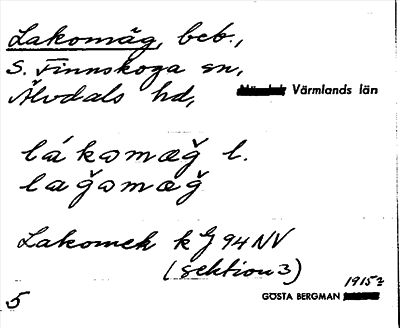 Lakomäg, beb.,
S. Finnskoga sn,
Älvdals hd, Värmlands län
lákɔmæğ l.
lağɔmæğ
Lakomek k 94 NV
(sektion 3)
1915
5 GÖSTA BERGMAN